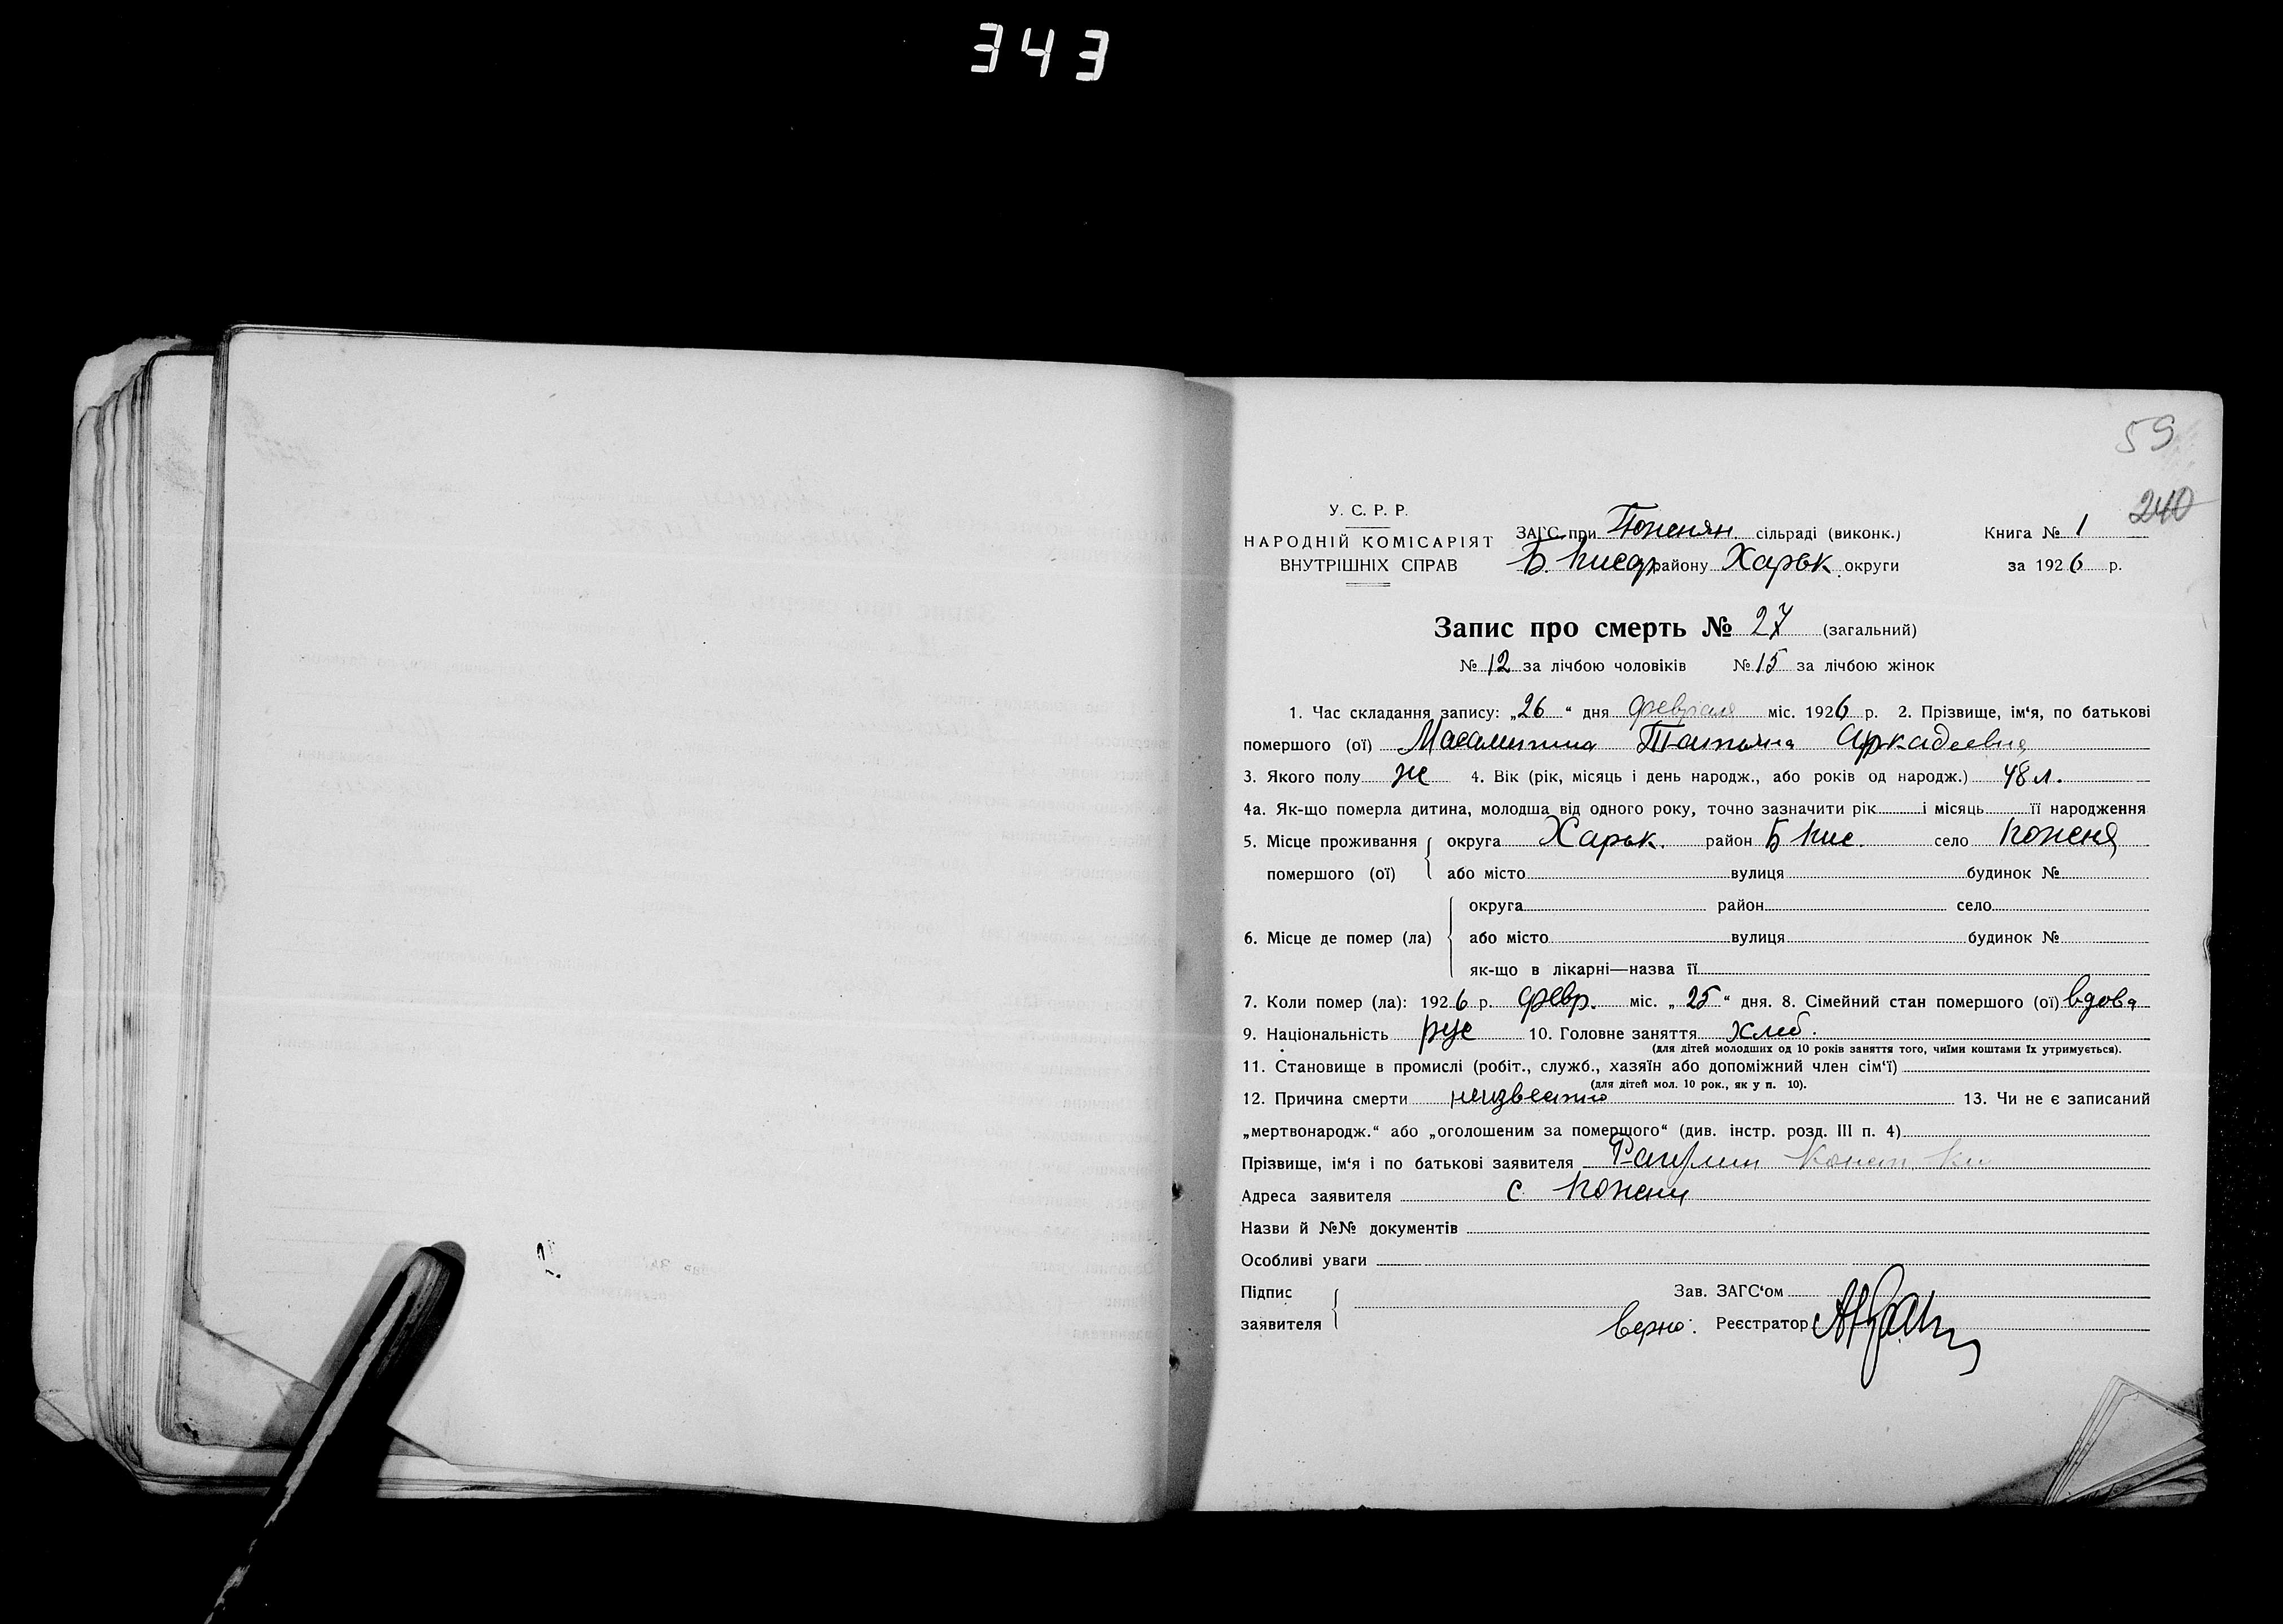 343
59
240
У. С. Р. Р.
НАРОДНІЙ КОМІСАРІЯТ
ВНУТРІШНІХ СПРАВ
ЗАГС при сільраді (виконк.)
Б. району Харьк. округи
Книга № 1
за 1926 р.
Запис про смерть № 27 (загальний)
№ 12 за лічбою чоловіків № 15 за лічбою жінок
1. Час складання запису: „26“ дня февраля міс. 1926 р. 2. Прізвище, ім‘я, по батькові
помершого (ої) Татьяна Аркадевна
3. Якого полу ж 4. Вік (рік, місяць і день народж., або років од народж.) 48 л.
4а. Як-що померла дитина, молодша від одного року, точно зазначити рік і місяць її народження
5. Місце проживання
помершого (ої)
округа Харьк. район Б Кис. село Коженя
або місто вулиця будинок №
6. Місце де помер (ла)
округа район село
або місто вулиця будинок №
як-що в лікарні—назва її
7. Коли помер (ла): 1926 р. февр. міс. „25“ дня. 8. Сімейний стан помершого (ої) вдова
9. Національність рус 10. Головне заняття хлеб.
(для дітей молодших од 10 років заняття того, чиїми коштами їх утримується).
11. Становище в промислі (робіт., служб., хазяїн або допоміжний член сім‘ї)
(для дітей мол. 10 рок., як у п. 10).
12. Причина смерти неизвестно 13. Чи не є записаний
„мертвонародж.“ або „оголошеним за помершого“ (див. інстр. розд. III п. 4)
Прізвище, ім‘я і по батькові заявителя
Адреса заявителя с. Кожени
Назви й №№ документів
Особливі уваги
Підпис
заявителя
Зав. ЗАГС‘ом
верно: Реєстратор